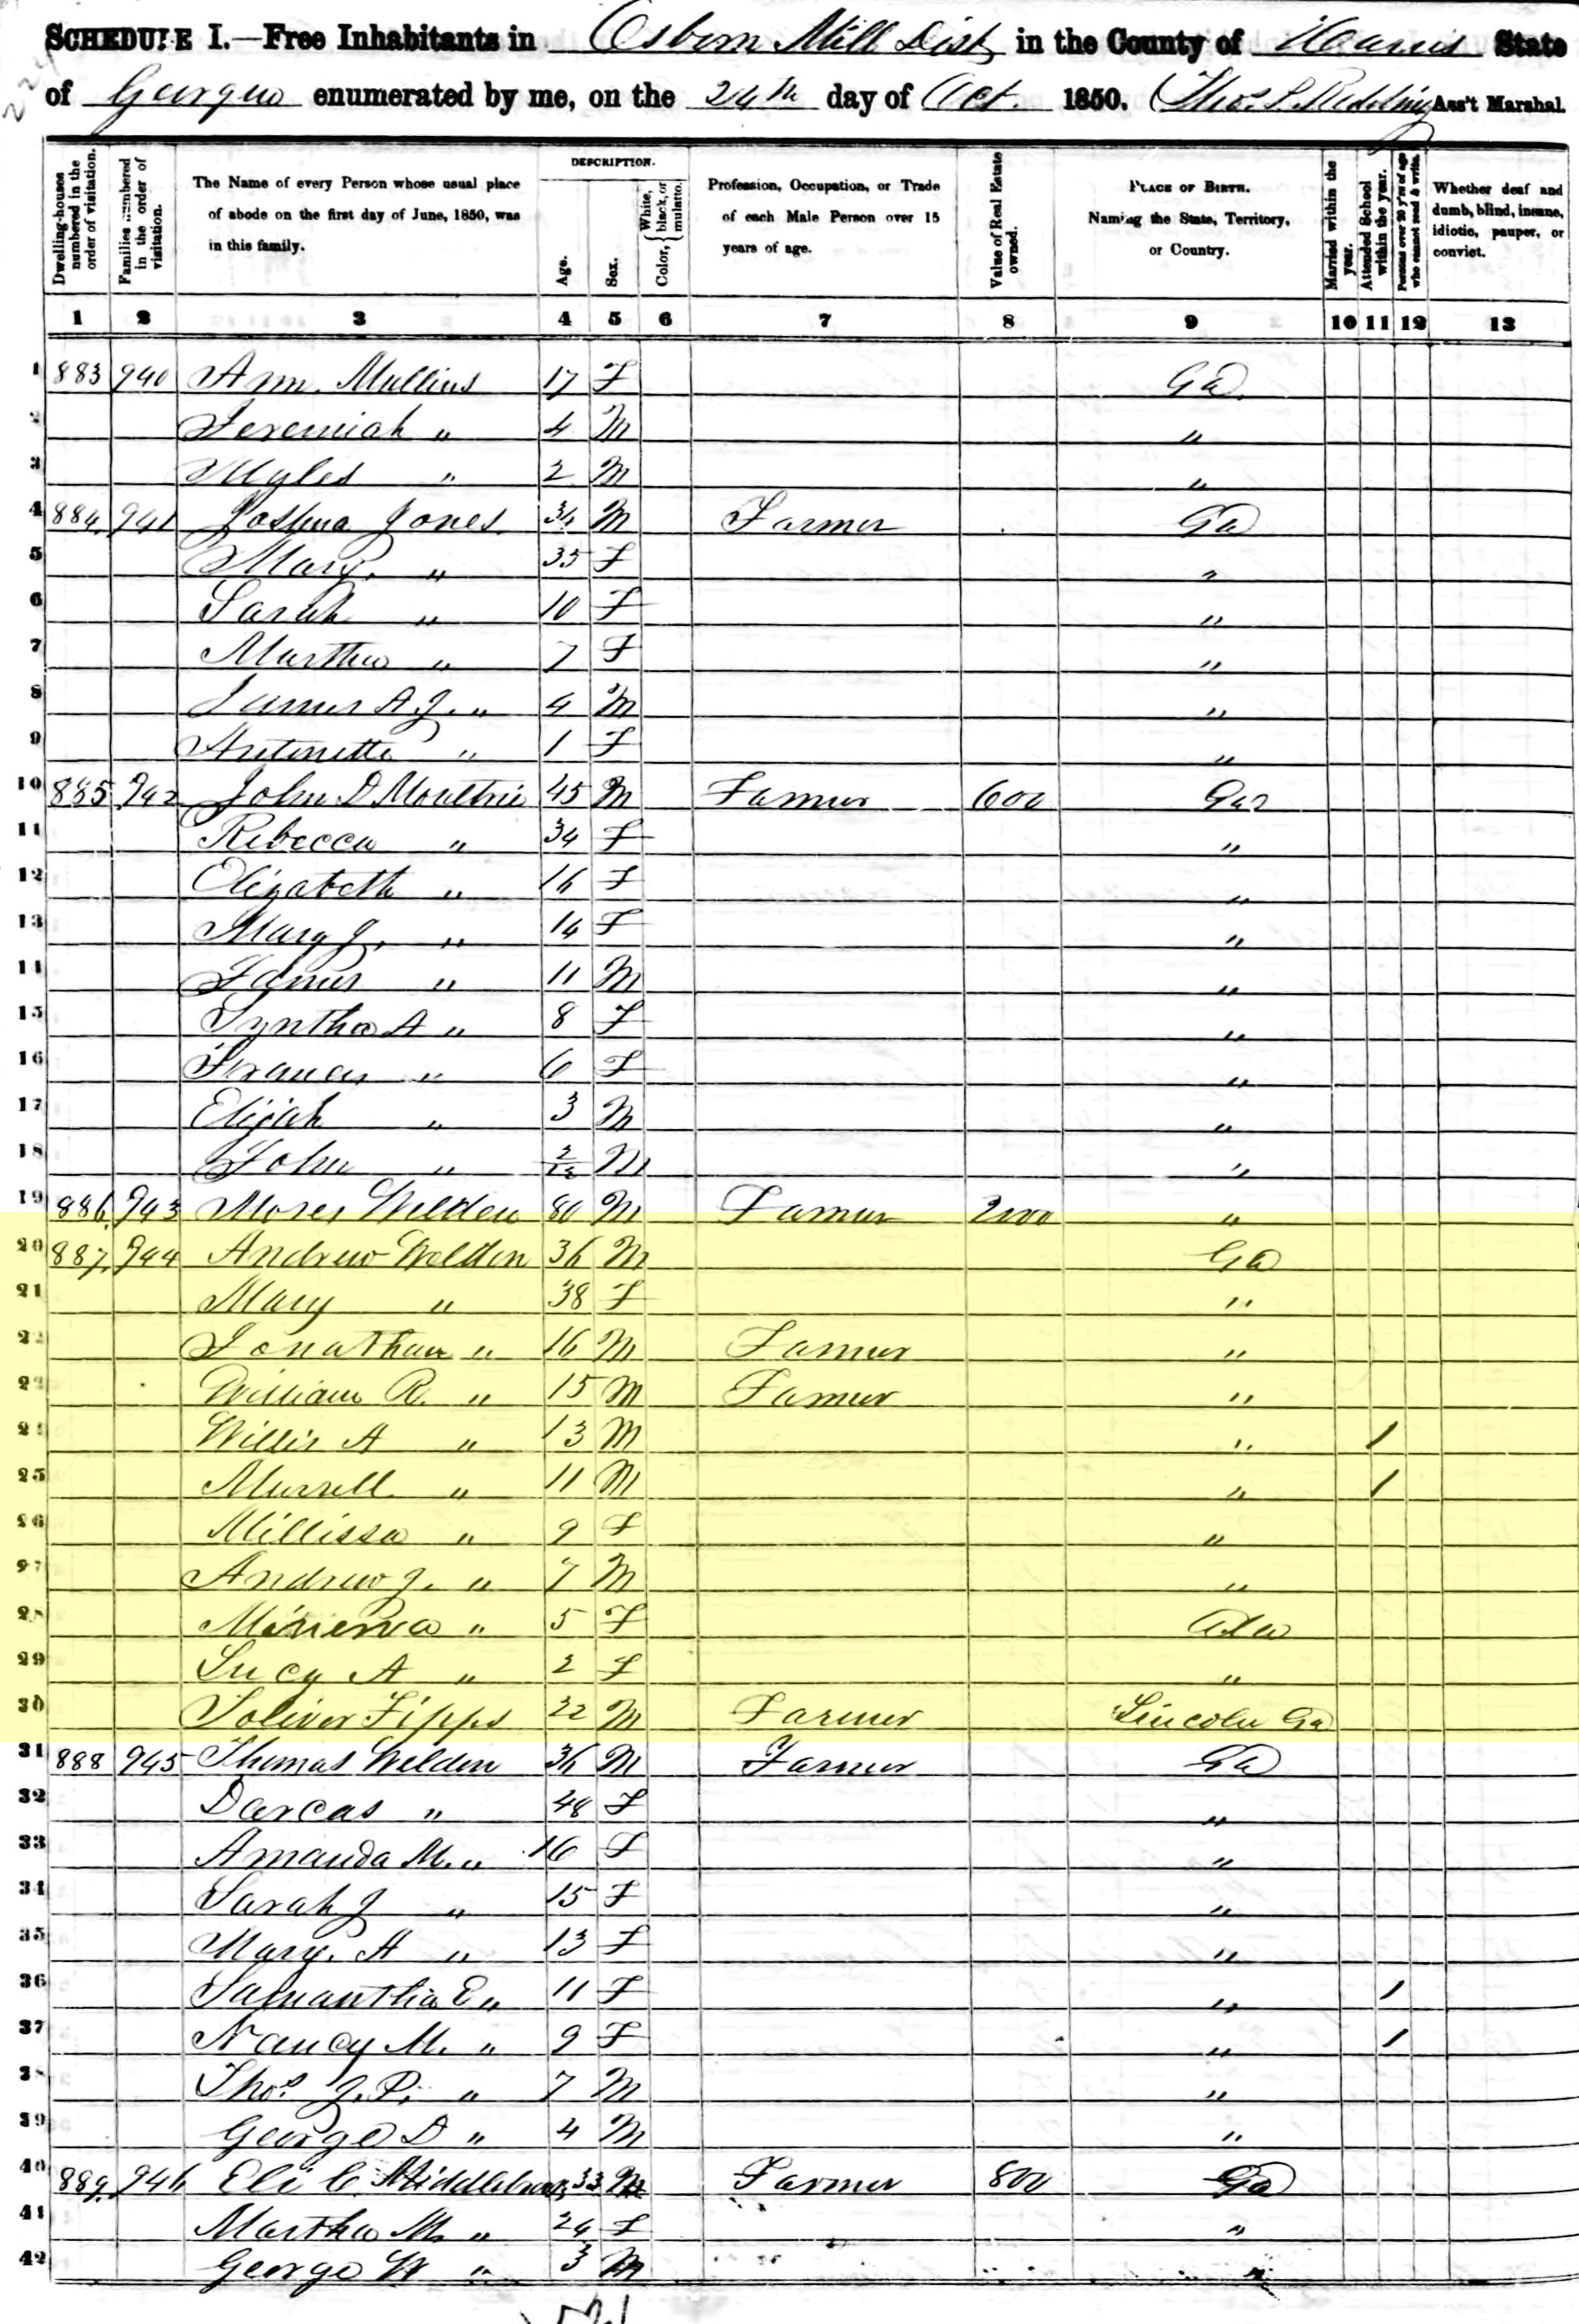 SCHEDULE I.—Free Inhabitants in Osborn Mill Dist in the County of Harris State
of Georgia enumerated by me, on the 24th day of Oct. 1850. Thos. P. Redding Ass't Marshal.
Dwelling-houses numbered in the order of visitation.
Families numbered in the order of visitation.
The Name of every Person whose usual place of abode on the first day of June, 1850, was in this family.
DESCRIPTION.
Age.
Sex.
Color, White, black, or mulatto.
Profession, Occupation, or Trade of each Male Person over 15 years of age.
Value of Real Estate owned.
PLACE OF BIRTH. Naming the State, Territory, or Country.
Married within the year.
Attended School within the year.
Persons over 20 y'rs of age who cannot read & write.
Whether deaf and dumb, blind, insane, idiotic, pauper, or convict.
1 2 3 4 5 6 7 8 9 10 11 12 13
1 883 940 Ann Mullins 17 F Ga
2 Jeremiah " 4 M "
3 Myles " 2 M "
4 884 941 Joshua Jones 34 M Farmer Ga
5 Mary " 35 F "
6 Sarah " 10 F "
7 Martha " 7 F "
8 James A. J. " 4 M "
9 Antinette " 1 F "
10 885 942 John D Moultrie 45 M Farmer 600 Ga
11 Rebecca " 34 F "
12 Elizabeth " 16 F "
13 Mary J. " 14 F "
14 James " 11 M "
15 Syntha A " 8 F "
16 Frances " 6 F "
17 Elijah " 3 M "
18 John " 2/12 M "
19 886 943 Moses Welden 80 M Farmer 2000 "
20 887 944 Andrew Welden 36 M Ga
21 Mary " 38 F "
22 Jonathan " 16 M Farmer "
23 William R. " 15 M Farmer "
24 Willis A " 13 M " /
25 Murrell " 11 M " /
26 Millissa " 9 F "
27 Andrew J. " 7 M "
28 Minerva " 5 F Ala
29 Lucy A " 2 F "
30 Toliver Fipps 22 M Farmer Lincoln Ga
31 888 945 Thomas Welden 36 M Farmer Ga
32 Darcas " 48 F "
33 Amanda M. " 16 F "
34 Sarah J " 15 F "
35 Mary. A " 13 F "
36 Samantha E " 11 F " /
37 Nancy M. " 9 F " /
38 Thos. J. P. " 7 M "
39 George D " 4 M "
40 889 946 Eli C. 33 M Farmer 800 Ga
41 Martha M. " 24 F "
42 George W " 3 M "